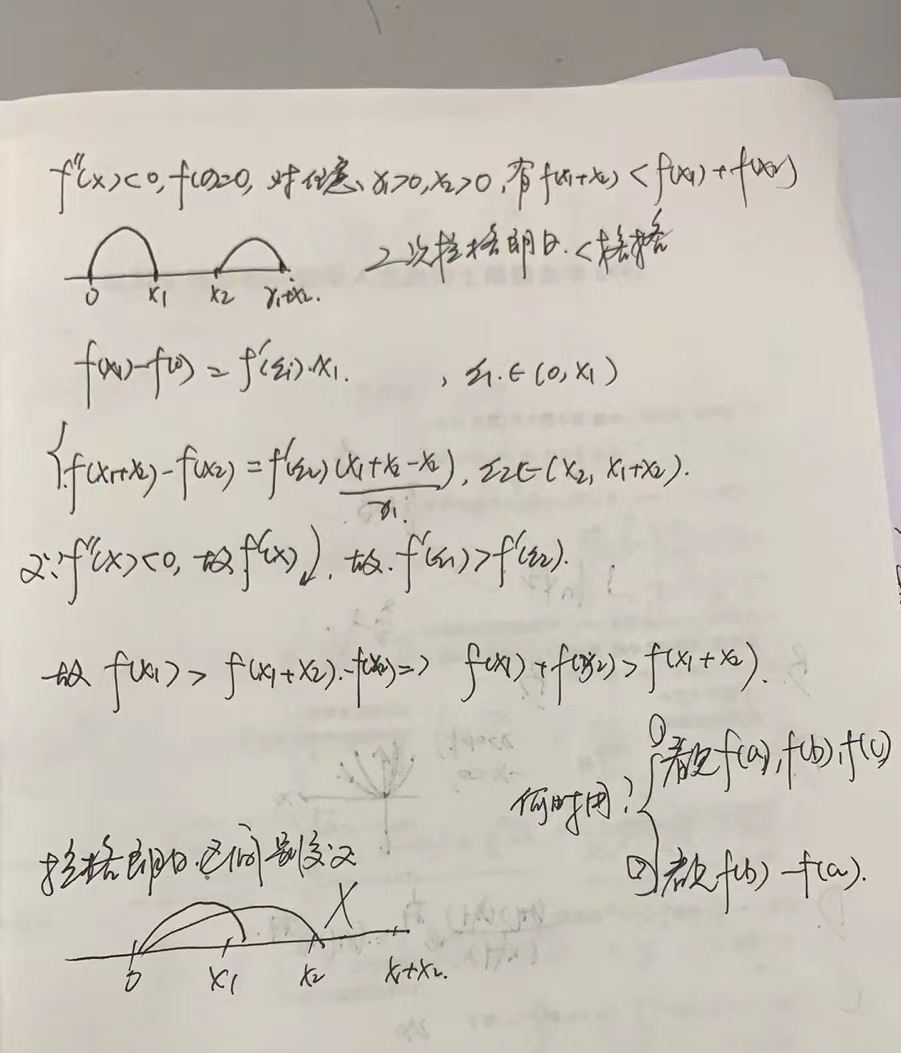 f''(x)<0, f(0)=0, 对任意 x₁>0, x₂>0, 有 f(x₁+x₂) < f(x₁) + f(x₂)
0 x₁ x₂ x₁+x₂.
2次拉格朗日.
f(x₁)-f(0) = f'(ξ₁)·x₁. , ξ₁.∈(0, x₁)
f(x₁+x₂)-f(x₂) = f'(ξ₂)(x₁+x₂-x₂), ξ₂∈(x₂, x₁+x₂).
x₁.
又∵f''(x)<0, 故f'(x)↘, 故.f'(ξ₁)>f'(ξ₂).
故 f(x₁) > f(x₁+x₂)-f(x₂) => f(x₁)+f(x₂)>f(x₁+x₂).
何时用?
① 看见f(a),f(b),f(c)
② 看见f(b)-f(a).
拉格朗日.区间别交叉
X
0 x₁ x₂ x₁+x₂.